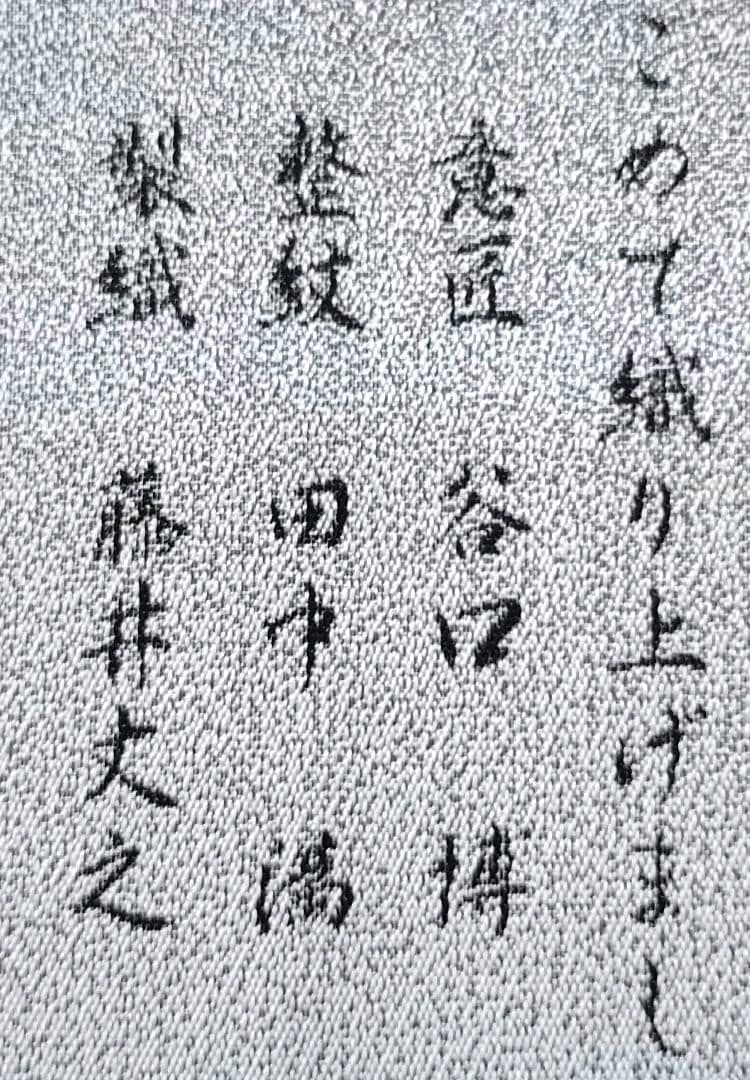 こめて織り上げまし
意匠 谷口 博
整紋 田中 満
製織 藤井丈之